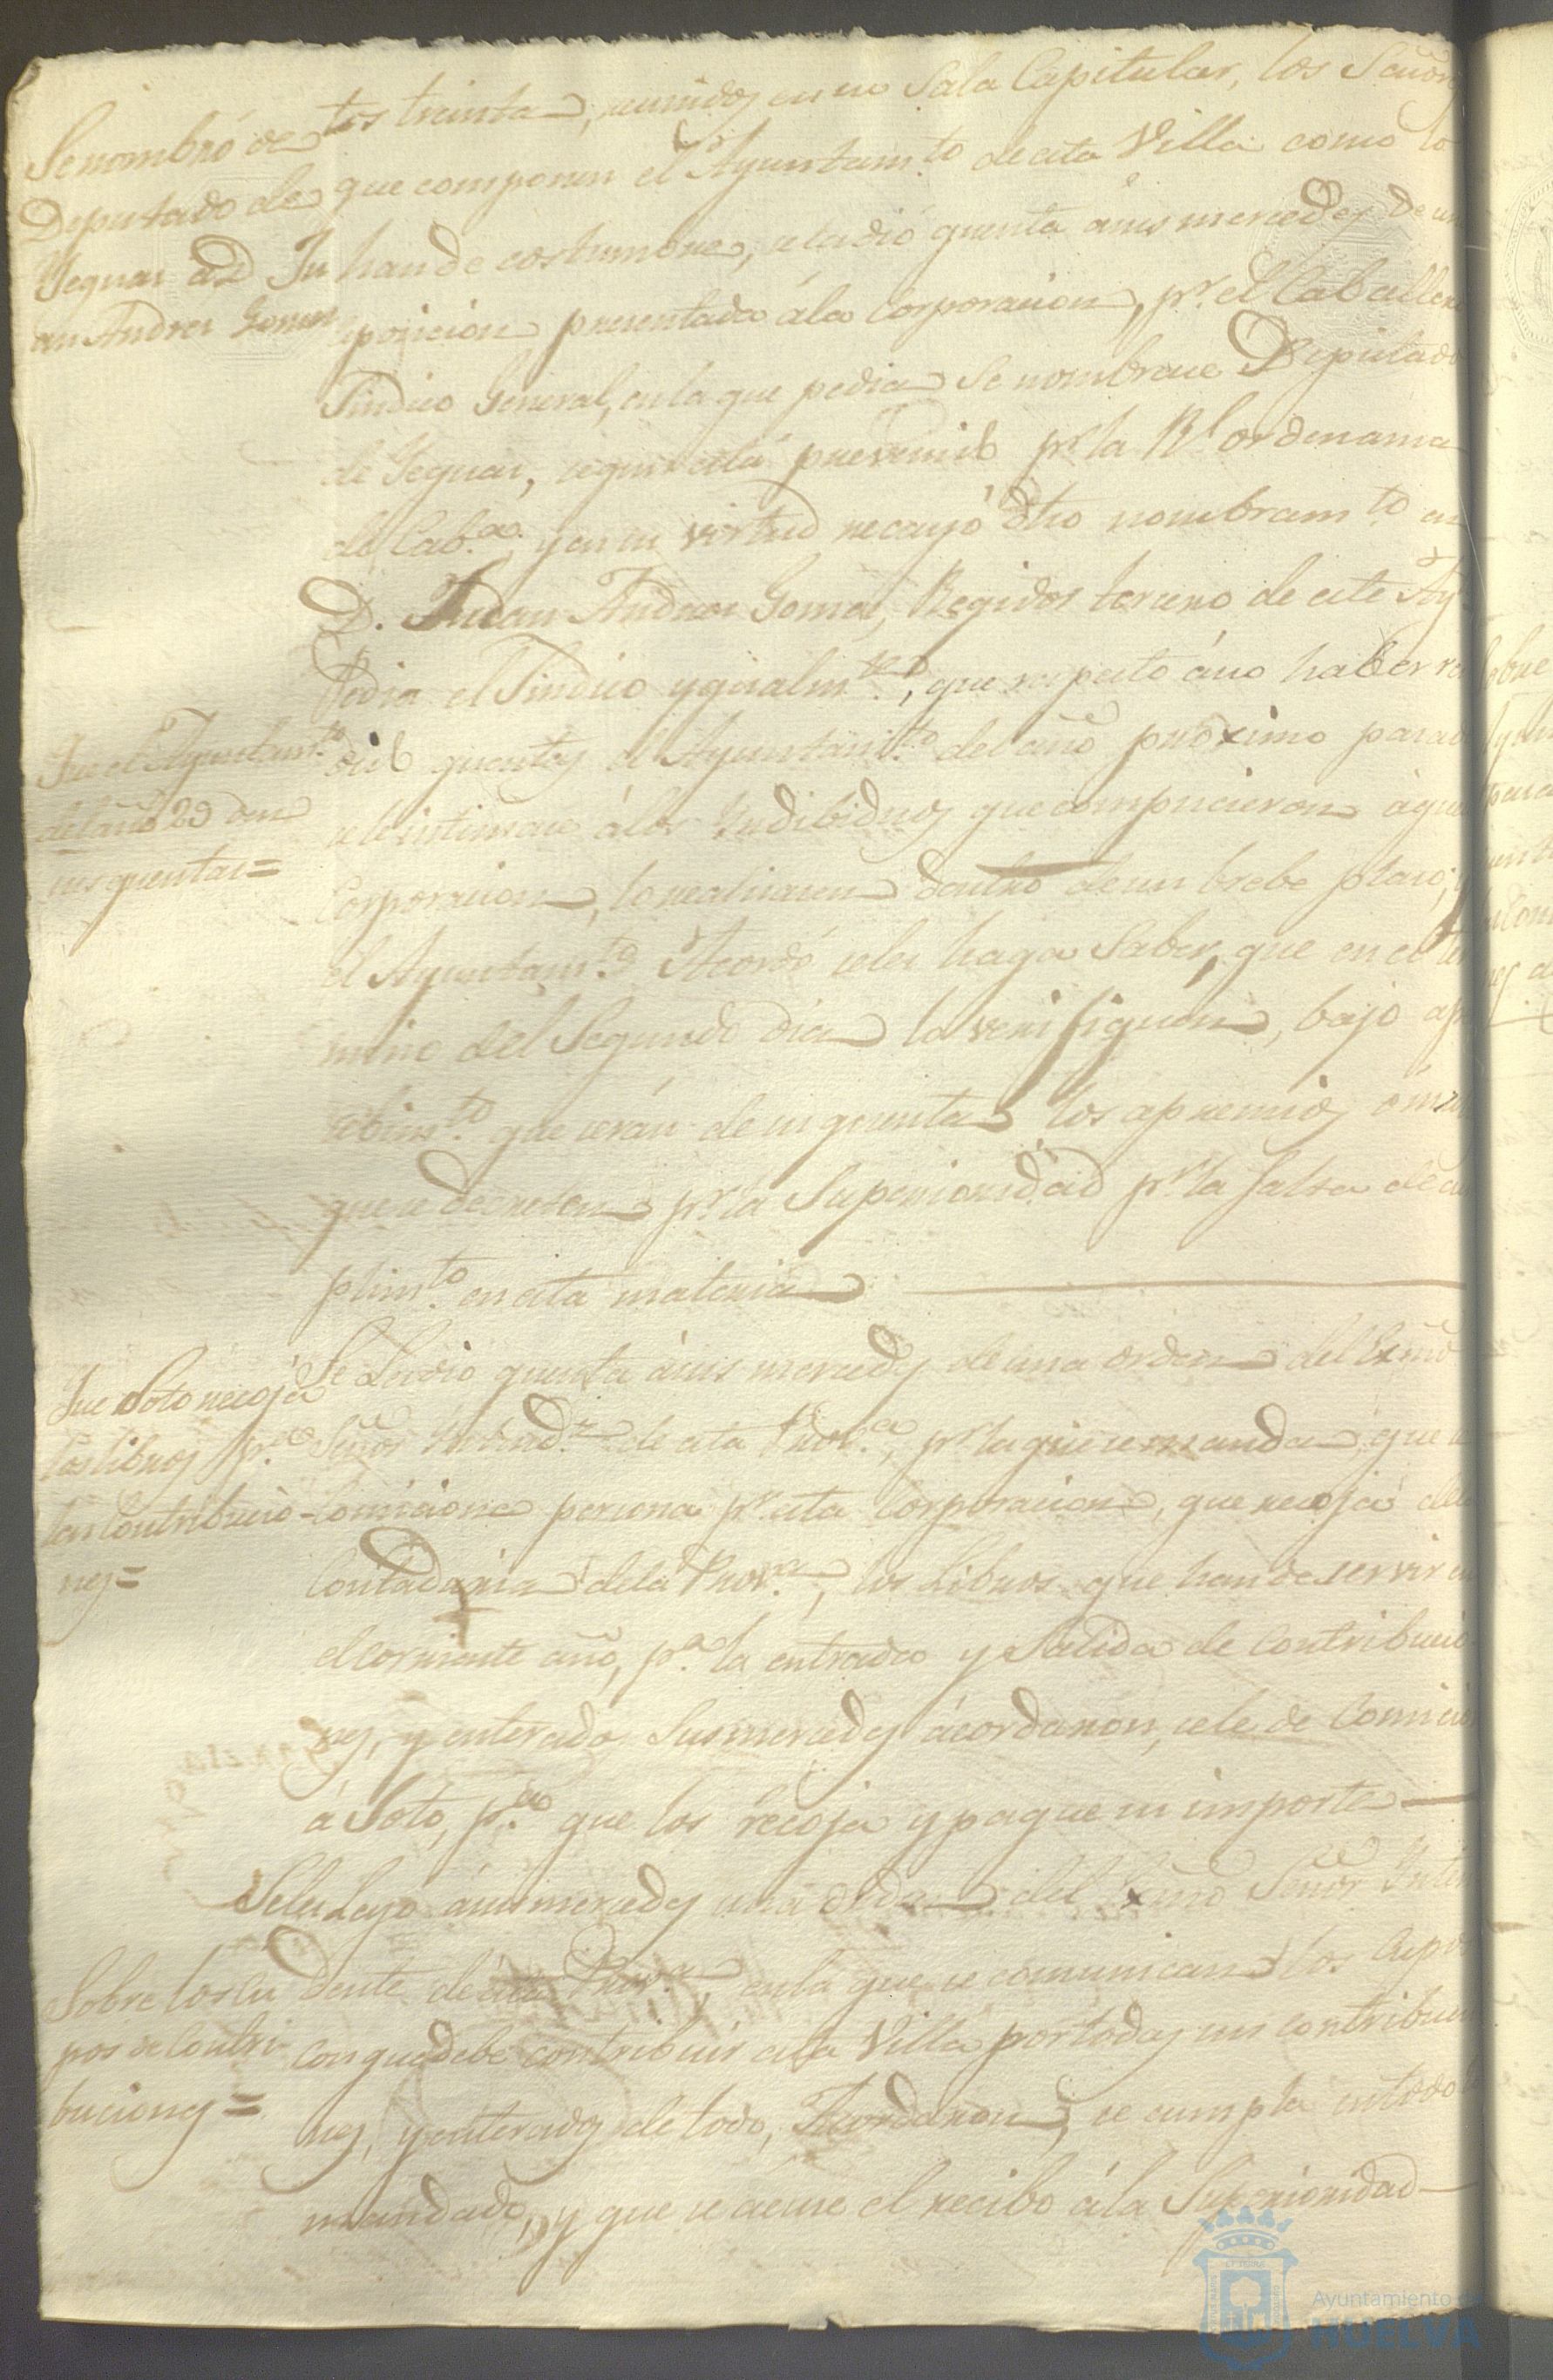 Se nombró de
Deputado de
Yeguas a D Ju
an Andres Gomez
tos treinta, reunidos en su Sala Capitular, los Señor
que componen el Ayuntam.to de esta Villa como lo
han de costumbre, se la dió quenta á sus mercedes de un
posicion presentada á la Corporacion, pr. el Caballero
Sindico General, en la que pedia se nombrase Diputado
de Yeguas, segun está prevenido pr. la Rl ordenansa
de Cab.a y en su virtud recayó dho nombram.to en
D. Juan Andres Gomez, Regidor tercero de este Ay
Pedia el Sindico ygualm.te, que respecto á no haber re
Que el Ayuntam.to
del año 29 den
sus quentas=
dido quentas el Ayuntam.to del año proximo pasado
se le intimase á los Yndibiduos que compucieron aque
Corporacion, lo realisasen dentro de un brebe plaso, y
el Ayuntam.to Acordó se les haga saber, que en el ter
mino del Segundo dia lo verifiquen, bajo ap
cibim.to que serán de su quenta los apremios
que se decreten pr. la Superioridad pr. la falta de cu
plim.to en esta materia
Que Soto recoja
los libros p.a
las Contribucio-
nes=
Se Le dió quenta á sus mercedes de una orden del Exmo
Señor Yntend.te de esta Prov.a, pr. la que se manda, que se
comicione persona pr. esta Corporacion, que recoja de la
Contaduria de la Prov.a, los Libros que han de servir en
el corriente año, p.a la entrada y Salida de Contribucio
nes, y enterados Sus mercedes ácordaron, se le dé Comicion
á Soto, p.a que los recoja y pague su importe
Se les Leyó á sus mercedes una orden del Exmo Señor Ynten
Sobre los cu
pos de Contri
buciones=
dente de esta Prov.a, en la que se comunican los Cupos
con que debe contribuir esta Villa por todas sus contribucio
nes, y enterados de todo, Acordaron, se cumpla en todo lo
mandado, y que se acuse el recibo á la Superioridad
Ayuntamiento de
HUELVA